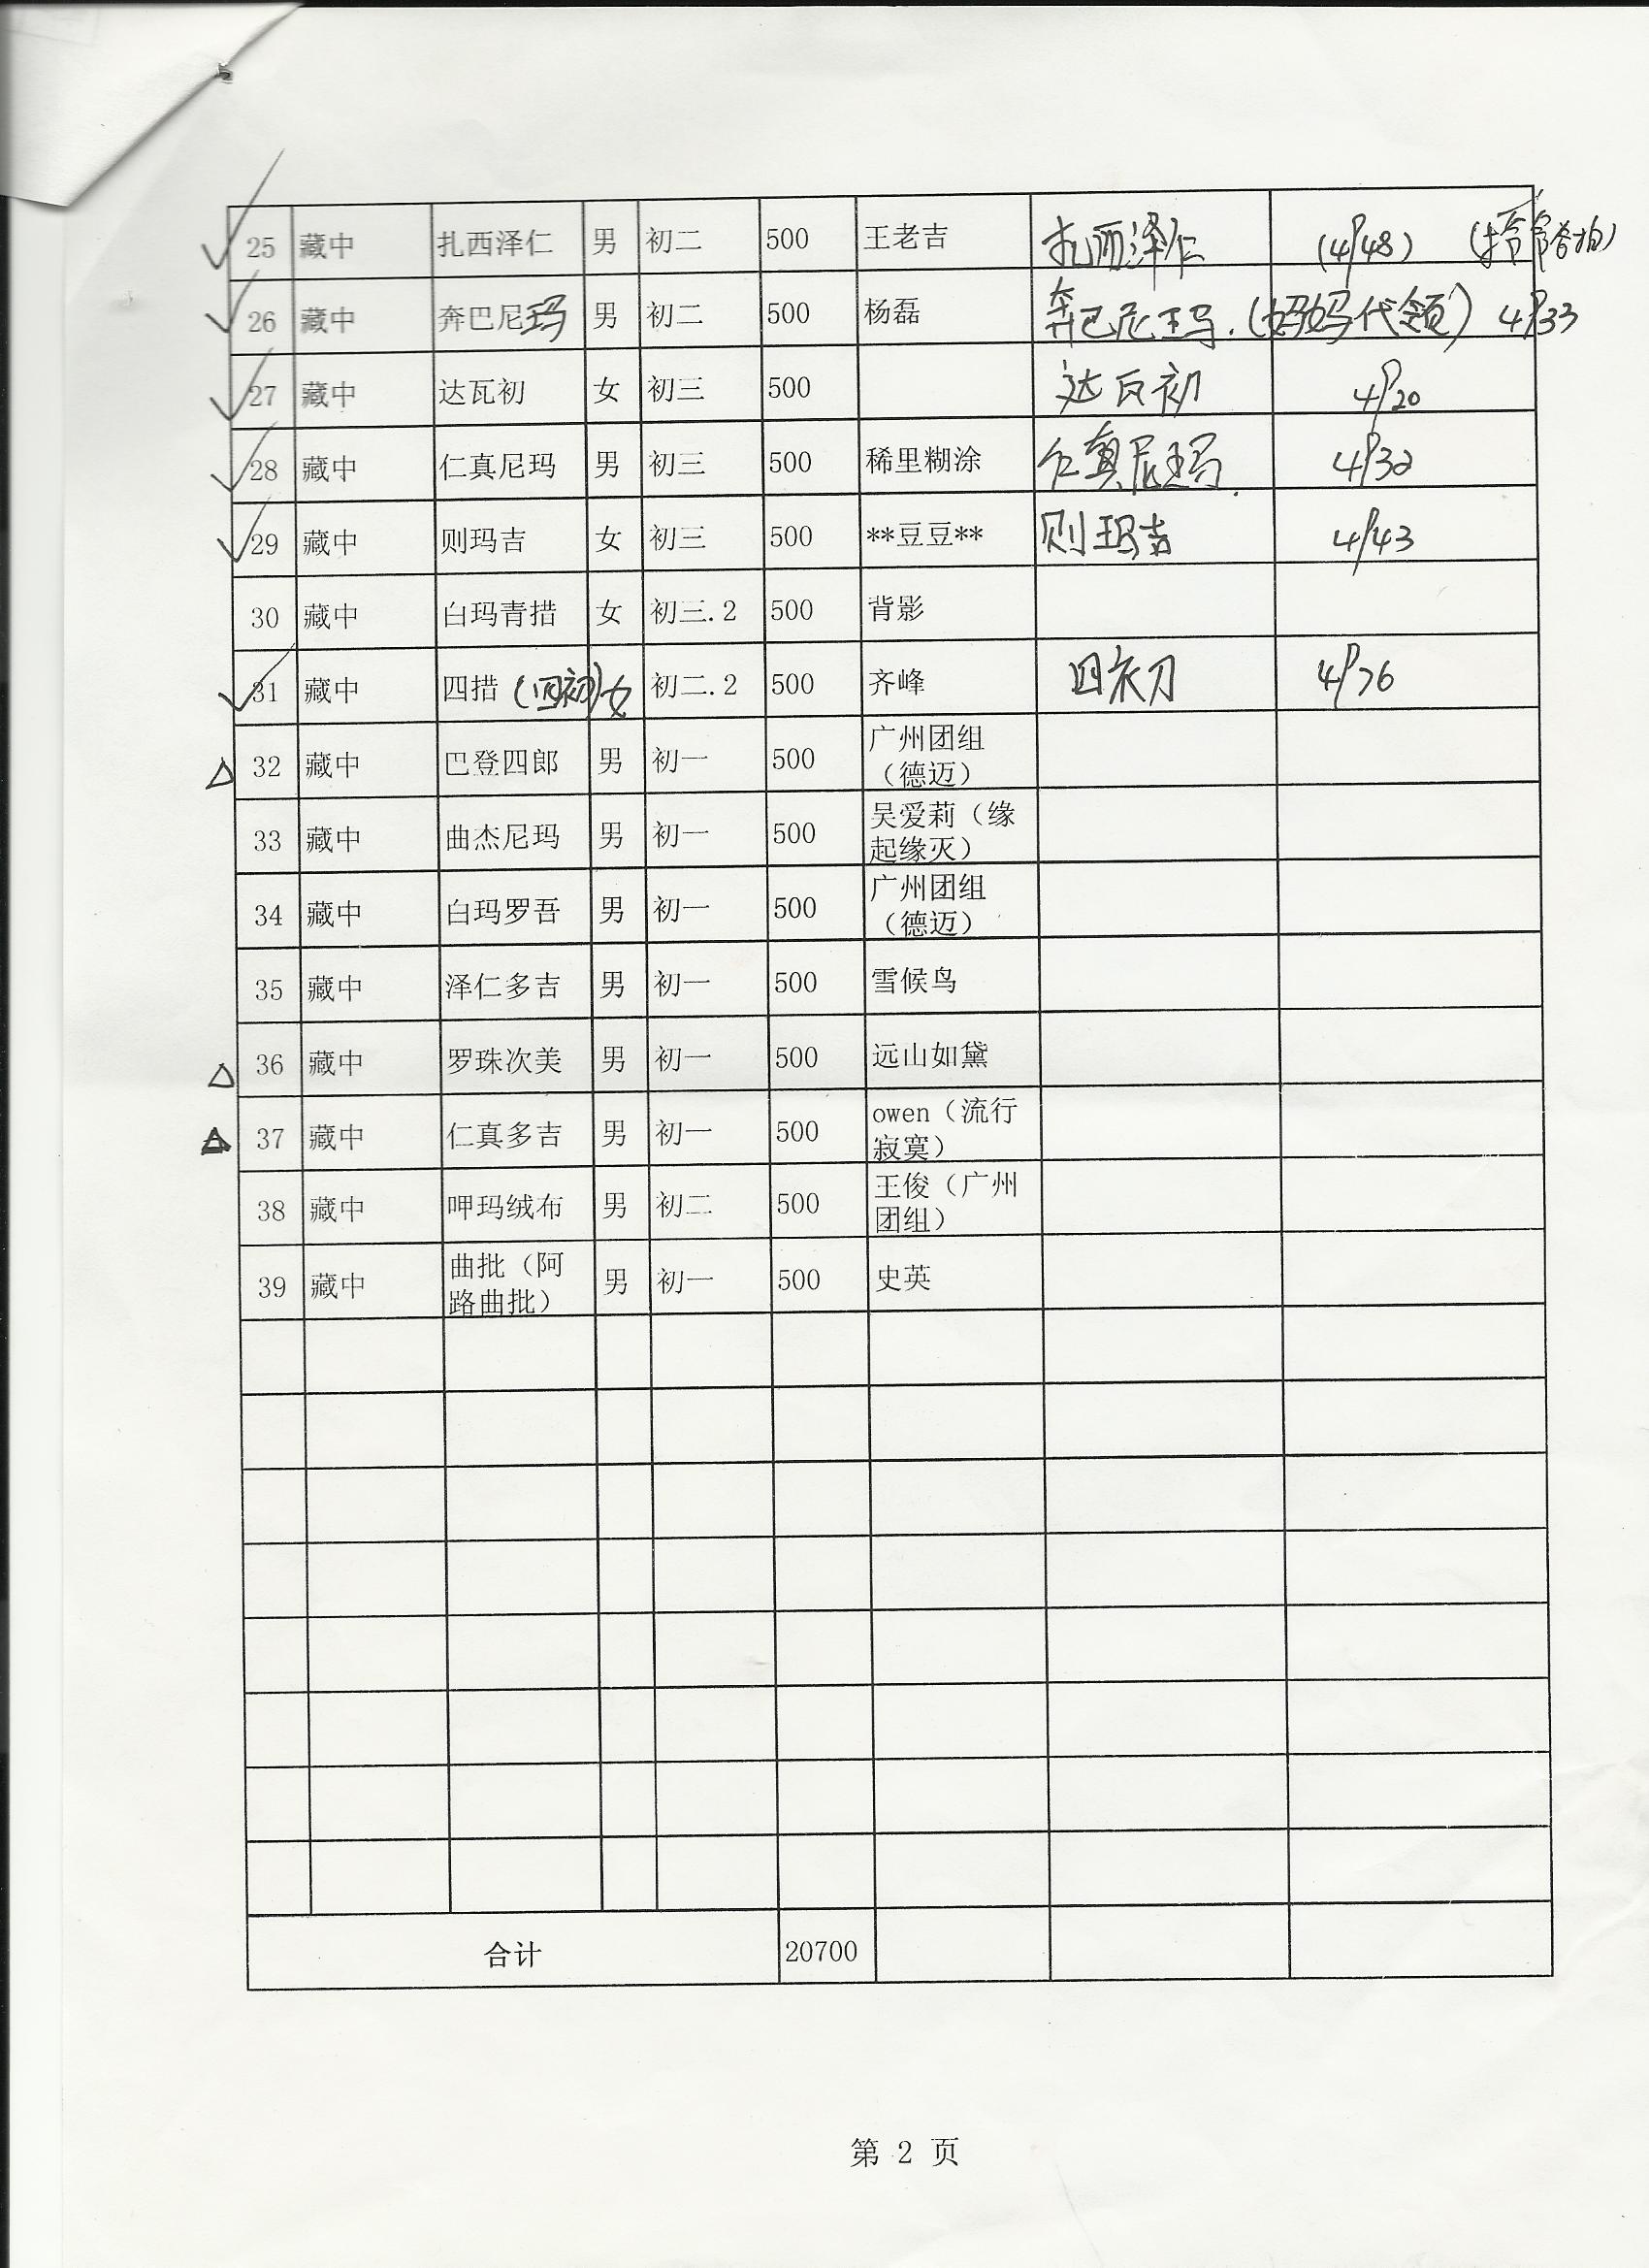 25 藏中 扎西泽仁 男 初二 500 王老吉 扎西泽仁 (4P48)
26 藏中 奔巴尼玛 男 初二 500 杨磊 奔巴尼玛.(妈妈代领) 4P33
27 藏中 达瓦初 女 初三 500 达瓦初 4P20
28 藏中 仁真尼玛 男 初三 500 稀里糊涂 仁真尼玛. 4P32
29 藏中 则玛吉 女 初三 500 **豆豆** 则玛吉 4P43
30 藏中 白玛青措 女 初三.2 500 背影
31 藏中 四措 (四初) 女 初二.2 500 齐峰 四初 4P76
32 藏中 巴登四郎 男 初一 500 广州团组
（德迈）
33 藏中 曲杰尼玛 男 初一 500 吴爱莉（缘
起缘灭）
34 藏中 白玛罗吾 男 初一 500 广州团组
（德迈）
35 藏中 泽仁多吉 男 初一 500 雪候鸟
36 藏中 罗珠次美 男 初一 500 远山如黛
37 藏中 仁真多吉 男 初一 500 owen（流行
寂寞）
38 藏中 呷玛绒布 男 初二 500 王俊（广州
团组）
39 藏中 曲批（阿
路曲批） 男 初一 500 史英
合计 20700
第 2 页